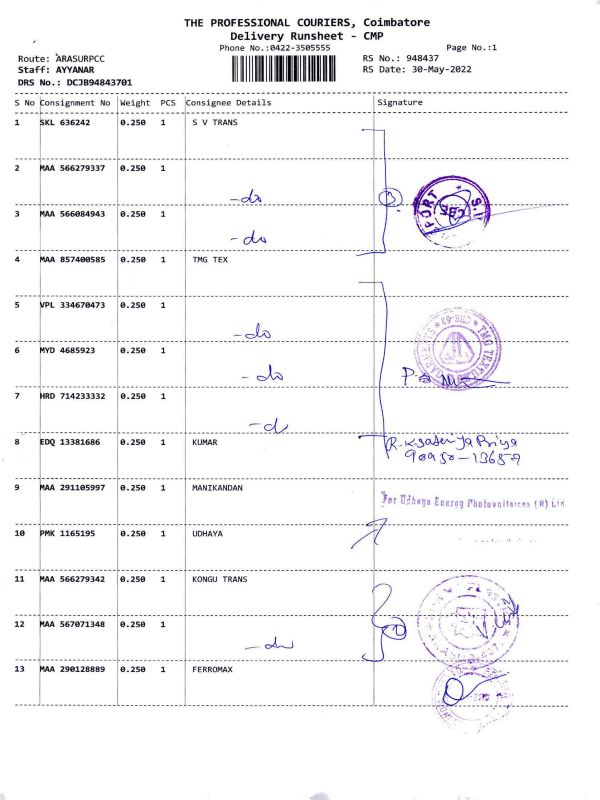 THE PROFESSIONAL COURIERS, Coimbatore
Delivery Runsheet - CMP
Phone No.:0422-3505555 Page No.:1
Route: ARASURPCC RS No.: 948437
Staff: AYYANAR RS Date: 30-May-2022
DRS No.: DCJB94843701
S No Consignment No Weight PCS Consignee Details Signature
1 SKL 636242 0.250 1 S V TRANS
2 MAA 566279337 0.250 1
-do
3 MAA 566084943 0.250 1
-do
4 MAA 857400585 0.250 1 TMG TEX
5 VPL 334670473 0.250 1
-do
6 MYD 4685923 0.250 1
-do
7 HRD 714233332 0.250 1
-d
8 EDQ 13381686 0.250 1 KUMAR
9 MAA 291105997 0.250 1 MANIKANDAN
For Udhaya Energy Photovoltaics (P) Ltd
10 PMK 1165195 0.250 1 UDHAYA
11 MAA 566279342 0.250 1 KONGU TRANS
12 MAA 567071348 0.250 1
-do
13 MAA 290128889 0.250 1 FERROMAX